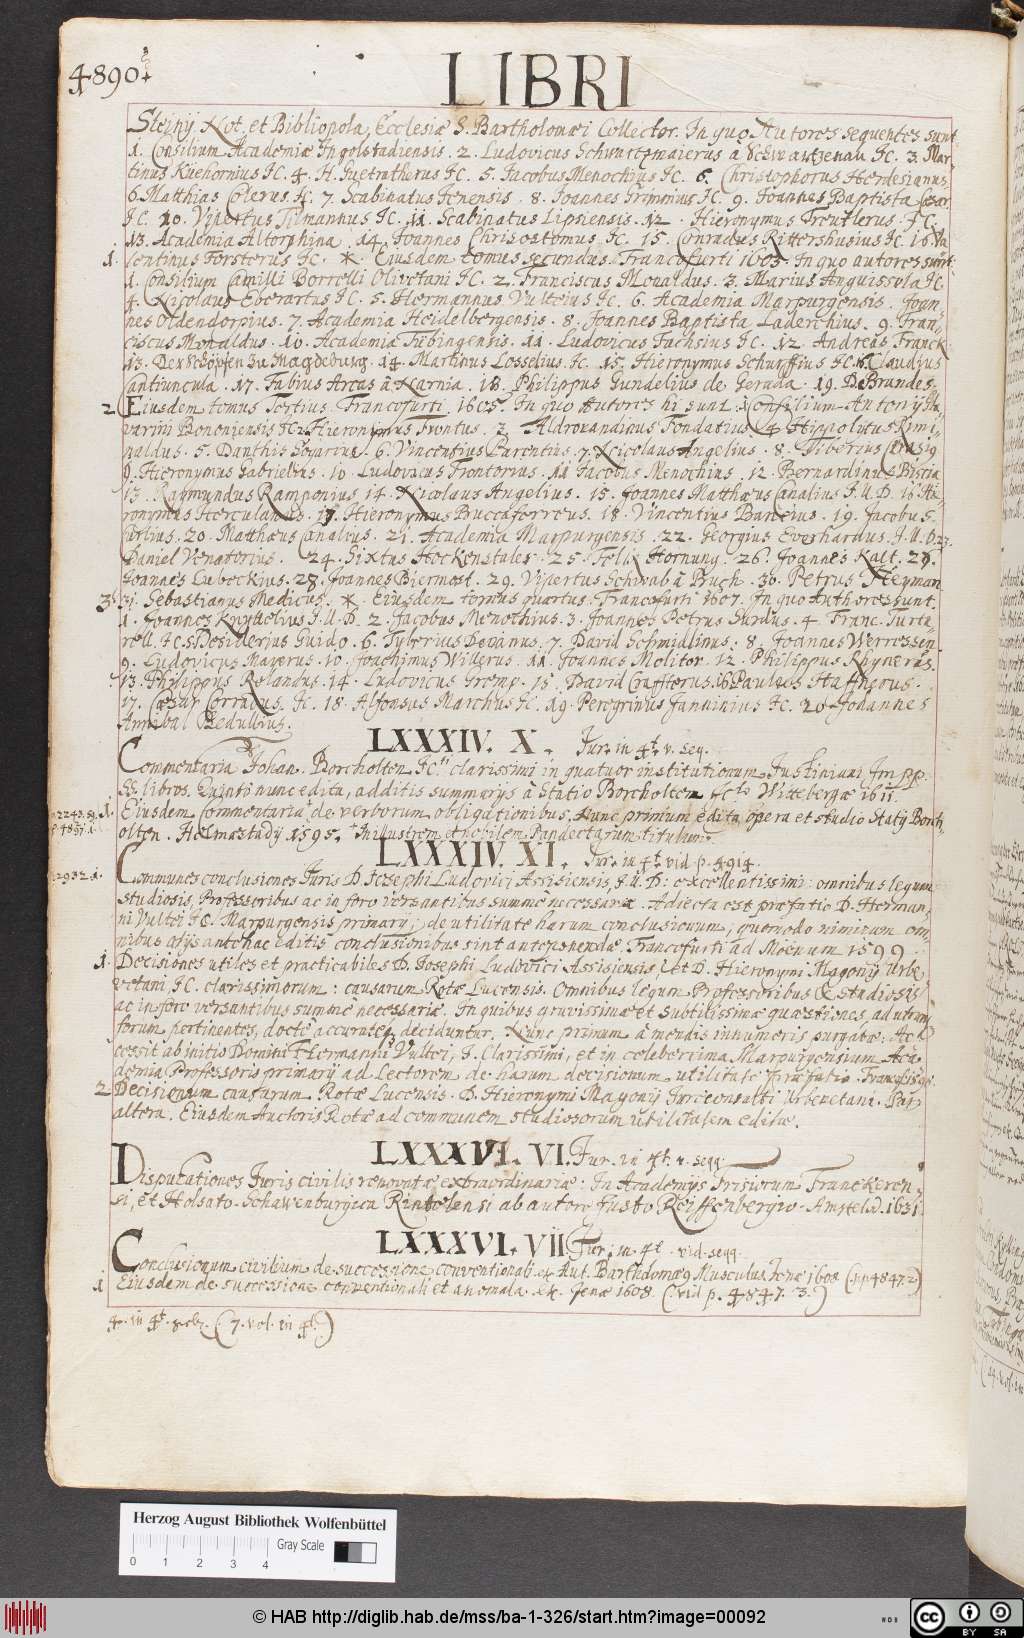 4890
LIBRI
Steinij Not. et Bibliopola, Ecclesiæ S. Bartholomæi Collector. In quo Autores sequentes sunt
1. Consilium Academiæ Ingolstadiensis. 2. Ludovicus Schwartzmaierus à Schwartzenau JC. 3. Mar-
tinus Kuehornius JC. 4. H. Guetratherus JC. 5. Jacobus Menochius JC. 6. Christophorus Herdesianus.
6. Matthias Colerus JC. 7. Scabinatus Jenensis. 8. Joannes Grimmius JC. 9. Joannes Baptista Cæsar
JC. 10. Vipertus Tilmannus JC. 11. Scabinatus Lipsiensis. 12. Hieronymus Treutlerus. JC.
13. Academia Altorphina. 14. Joannes Chrisostomus JC. 15. Conradus Rittershusius JC. 16. Va
1. lentinus Forsterus JC. * Ejusdem tomus secundus. Francofurti 1603. In quo autores sunt
1. Consilium Camilli Borrelli Olivetani JC. 2. Franciscus Monaldus. 3. Marius Anguissola JC
4. Nicolaus Everartus JC. 5. Hermannus Vulteius JC. 6. Academia Marpurgensis. Joan-
nes Oldendorpius. 7. Academia Heidelbergensis. 8. Joannes Baptista Laderchius. 9. Fran-
ciscus Monaldus. 10. Academia Tubingensis. 11. Ludovicus Fachsius JC. 12. Andreas Franck
13. Der Schöpfen zu Magdeburg. 14. Martinus Losselius JC. 15. Hieronymus Schurffius JC. 16. Claudius
Cantiuncula. 17. Fabius Arcas à Narnia. 18. Philippus Gundelius de Gerada. 19. D. Brandes.
2 Ejusdem tomus Tertius Francofurti 1605. In quo Autores hi sunt. 1. Consilium Antonij Ga
varini Bononiensis JC. 2. Hieronymus Trontus. 3. Aldrovandinus Fondatius. 4. Hippolytus Rimi-
naldus. 5. Danthis 6. Vincentius Parentius. 7. Nicolaus Angelius. 8. Tiberius
9. Hieronymus Gabrielius. 10. Ludovicus Trontorius. 11. Jacobus Menochius. 12. Bernardinus
13. Raymundus Ramponius 14. Nicolaus Angelius. 15. Joannes Matthæus Canalius J.U.D. 16. Hi-
ronymus Herculanus. 17. Hieronymus Buccaferreus. 18. Vincentius Bancius. 19. Jacobus
Curlius. 20. Matthæus Canalius. 21. Academia Marpurgensis. 22. Georgius Everhardus. J.U.D. 23.
Daniel Venatorius. 24. Sixtus Hockenstaler. 25. Felix Hornung. 26. Joannes Kalt. 27.
Joannes Lubeckius. 28. Joannes Biermost. 29. Vipertus Schwab à Buch. 30. Petrus Heyman
3. 31. Sebastianus Medicus. * Ejusdem tomus quartus. Francofurti 1607. In quo Authores sunt.
1. Joannes Knyttelius J.U.D. 2. Jacobus Menochius. 3. Joannes Petrus Surdus. 4. Franc. Turta-
rell. JC. 5. Desiderius Guido. 6. Tyberius Decianus. 7. David Schmidlinus. 8. Joannes Werressen.
9. Ludovicus Mayerus. 10. Joachimus Willerus. 11. Joannes Molitor. 12. Philippus Rhyneras.
13. Philippus Rolandus. 14. Ludovicus Gremp. 15. David Crafterus. 16. Paulus Haffnerus.
17. Cæsar Corradus. JC. 18. Alfonsus Marchus JC. 19. Peregrinus Fanninius JC. 20. Joannes
Annibal Bedullius.
LXXXIV. X. Jur. in 4t. v. seq.
Commentaria Johan. Borcholten JCti clarissimi in quatuor institutionum Justiniani Impp.
SS. libros. Quinti nunc edita, additis summarijs à Statio Borcholten JCto Witebergæ 1611.
1. Ejusdem Commentaria de verborum obligationibus. Nunc primum edita opera et studio Statij Borch
olten. Helmæstadij 1595. In illustrem et nobilem Pandectarum titulum.
LXXXIV. XI. Jur. in 4t. vid p. 4914.
2932.1. Communes conclusiones Juris D. Josephi Ludovici Assisiensis, J.U.D. excellentissimi: omnibus legum
studiosis, Professoribus ac in foro versantibus summe necessaræ. Adiecta est præfatio D. Herman-
ni Vultei JC. Marpurgensis primarij; de utilitate harum conclusionum, quomodo nimirum om-
nibus alijs antehac editis conclusionibus sint anteponendæ Francofurti ad Moenum 1599.
1. Decisiones utiles et practicabiles D. Josephi Ludovici Assisiensis, et D. Hieronymi Magonij Urbe
vetani JC. clarissimorum: causarum Rotæ Lucensis. Omnibus legum Professoribus & studiosis
ac in foro versantibus summe necessariæ. In quibus gravissimæ et subtilissimæ quæstiones, ad utrum
forum pertinentes, docte accurateq deciduntur. Nunc primum à mendis innumeris purgatæ. Ac-
cessit ab initio Domini Hermanni Vultei, J. Clarissimi, et in celeberrima Marpurgensium Aca
demia Professoris primarij ad Lectorem de harum decisionum utilitate præfatio. Francof.
2. Decisionum causarum Rotæ Lucensis. D. Hieronymi Magonij Jurisconsulti Urbevetani. Pars
altera. Ejusdem Auctoris Rotæ ad communem studiosorum utilitatem editæ.
LXXXVI. VI. Jur. in 4t. v. seqq.
Disputationes Juris civilis renovatæ, extraordinariæ: In Academijs Frisiorum Franekeren-
si, et Holsato-Schawenburgica Rintelensi ab autore Justo Reiffenbergio. Amsteld. 1631.
LXXXVI. VII. Jur. in 4t. vid. seqq.
Conclusionum civilium de successione conventionali ex Aut. Bartholomæo Musculus Jenæ 1608 (p. 4847.2)
1 Ejusdem de successione conventionali et anomala. ex. Jenæ 1608. (vid p. 4847. 3.)
(7. vol. in 4t.)
Herzog August Bibliothek Wolfenbüttel
Gray Scale
0 1 2 3 4
© HAB http://diglib.hab.de/mss/ba-1-326/start.htm?image=00092
WDB
cc BY SA